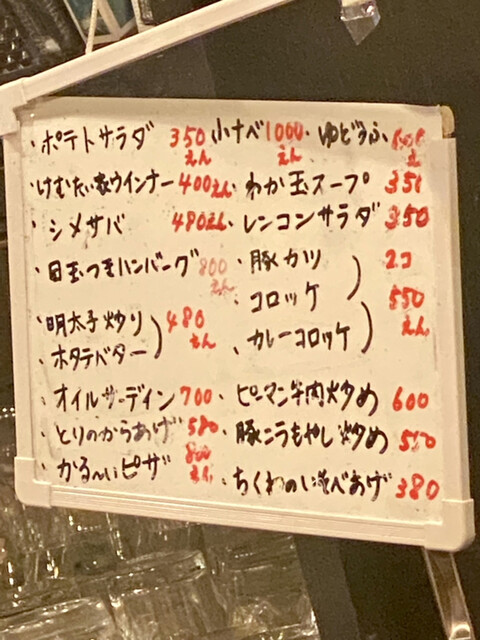 ・ポテトサラダ 350えん
けむたい家ウインナー 400えん
・シメサバ 480えん
・目玉つきハンバーグ 800えん
・明太子炒り
・ホタテバター 480えん
・オイルサーディン 700
・とりのからあげ 580
・かる〜いピザ 800えん
小ナベ 1000えん
・ゆどうふ 600え
・わか玉スープ 350
・レンコンサラダ 350
・豚カツ
・コロッケ
・カレーコロッケ
2コ 550えん
・ピーマン牛肉炒め 600
・豚ニラもやし炒め 550
・ちくわのいそべあげ 380